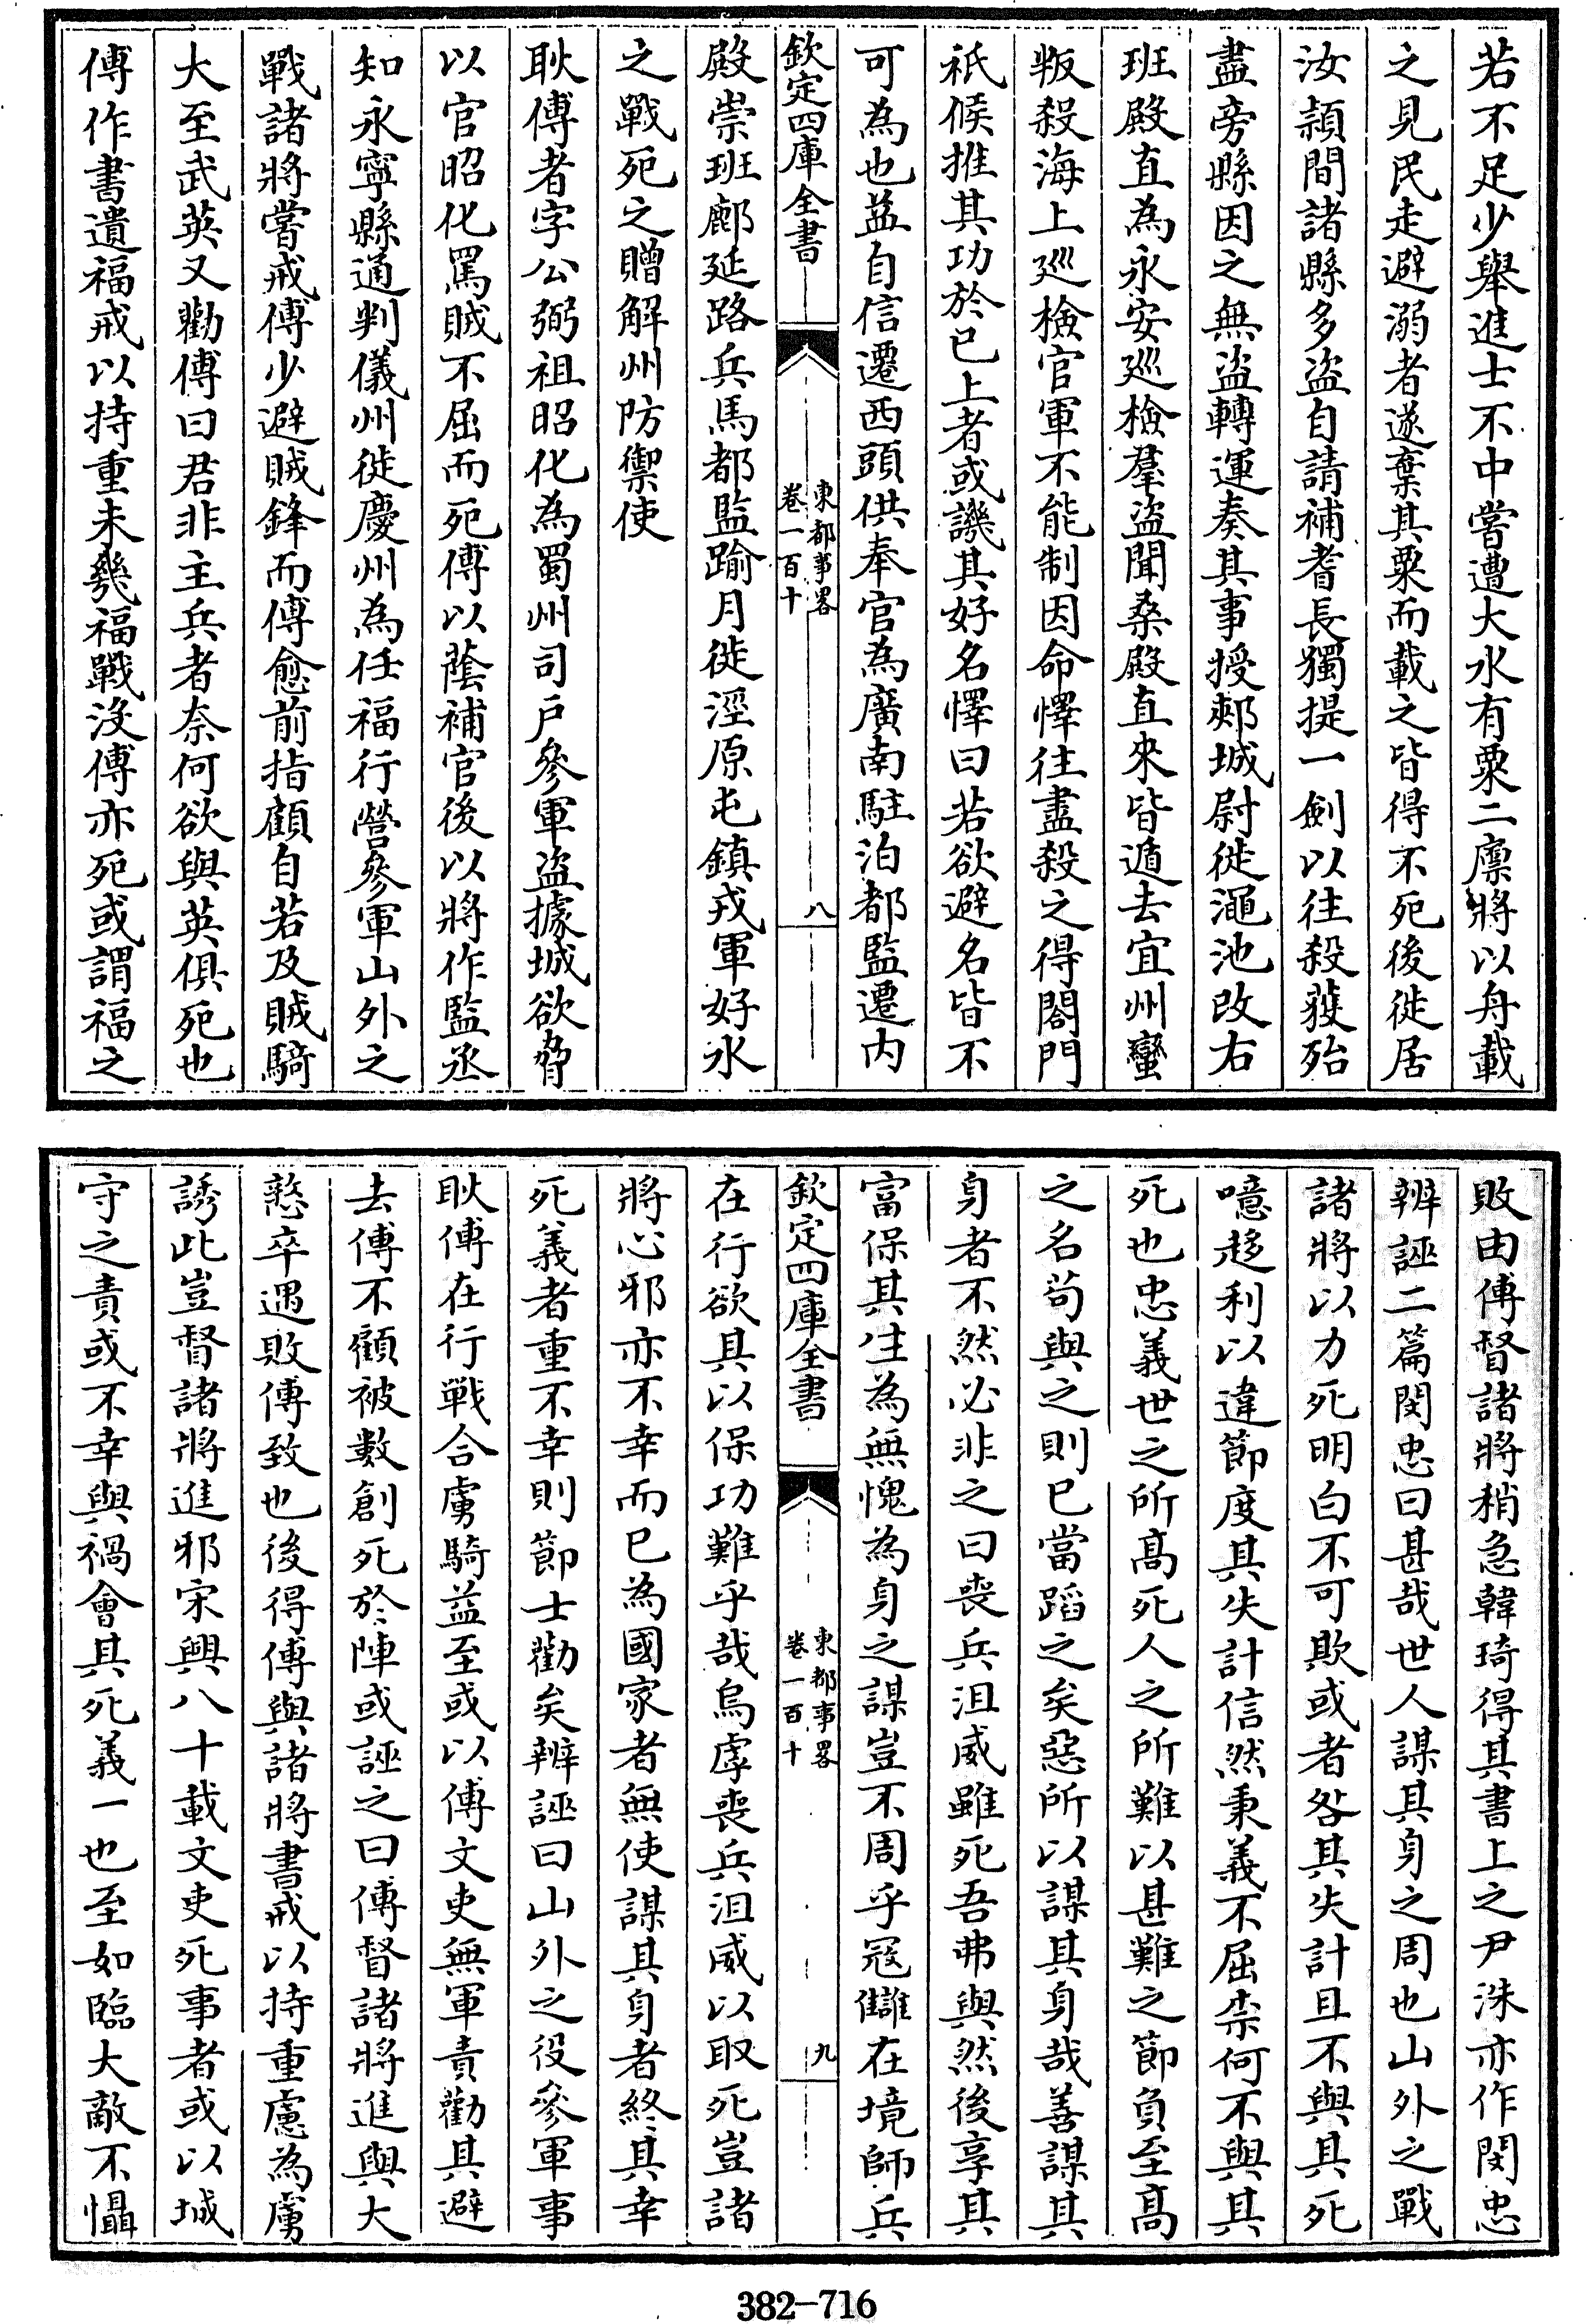 若不足少舉進士不中嘗遭大水有粟二廩將以舟載
之見民走避溺者遂棄其粟而載之皆得不死後徙居
汝潁間諸縣多盜自請補耆長獨提一劍以往殺獲殆
盡旁縣因之無盜轉運奏其事授郟城尉徙澠池改右
班殿直為永安巡檢羣盜聞桑殿直來皆遁去宜州蠻
叛殺海上巡檢官軍不能制因命懌往盡殺之得閤門
祇候推其功於已上者或譏其好名懌曰若欲避名皆不
可為也益自信遷西頭供奉官為廣南駐泊都監遷內
欽定四庫全書
東都事畧
卷一百十
八
殿崇班鄜延路兵馬都監踰月徙涇原屯鎮戎軍好水
之戰死之贈解州防禦使
耿傅者字公弼祖昭化為蜀州司戶參軍盜據城欲脅
以官昭化罵賊不屈而死傅以蔭補官後以將作監丞
知永寧縣通判儀州徙慶州為任福行營參軍山外之
戰諸將嘗戒傅少避賊鋒而傅愈前指顧自若及賊騎
大至武英又勸傅曰君非主兵者奈何欲與英俱死也
傅作書遺福戒以持重未幾福戰沒傅亦死或謂福之
敗由傅督諸將稍急韓琦得其書上之尹洙亦作閔忠
辨誣二篇閔忠曰甚哉世人謀其身之周也山外之戰
諸將以力死明白不可欺或者咎其失計且不與其死
噫趍利以違節度其失計信然秉義不屈柰何不與其
死也忠義世之所髙死人之所難以甚難之節負至髙
之名苟與之則已當蹈之矣惡所以謀其身哉善謀其
身者不然必非之曰喪兵沮威雖死吾弗與然後享其
富保其生為無愧為身之謀豈不周乎冦讎在境師兵
欽定四庫全書
東都事畧
卷一百十
九
在行欲其以保功難乎哉烏虖喪兵沮威以取死豈諸
將心邪亦不幸而已為國家者無使謀其身者終其幸
死義者重不幸則節士勸矣辨誣曰山外之役參軍事
耿傅在行戰合虜騎益至或以傅文吏無軍責勸其避
去傅不顧被數創死於陣或誣之曰傅督諸將進與大
慦卒遇敗傅致也後得傅與諸將書戒以持重慮為虜
誘此豈督諸將進邪宋興八十載文吏死事者或以城
守之責或不幸與禍會其死義一也至如臨大敵不懾
382-716